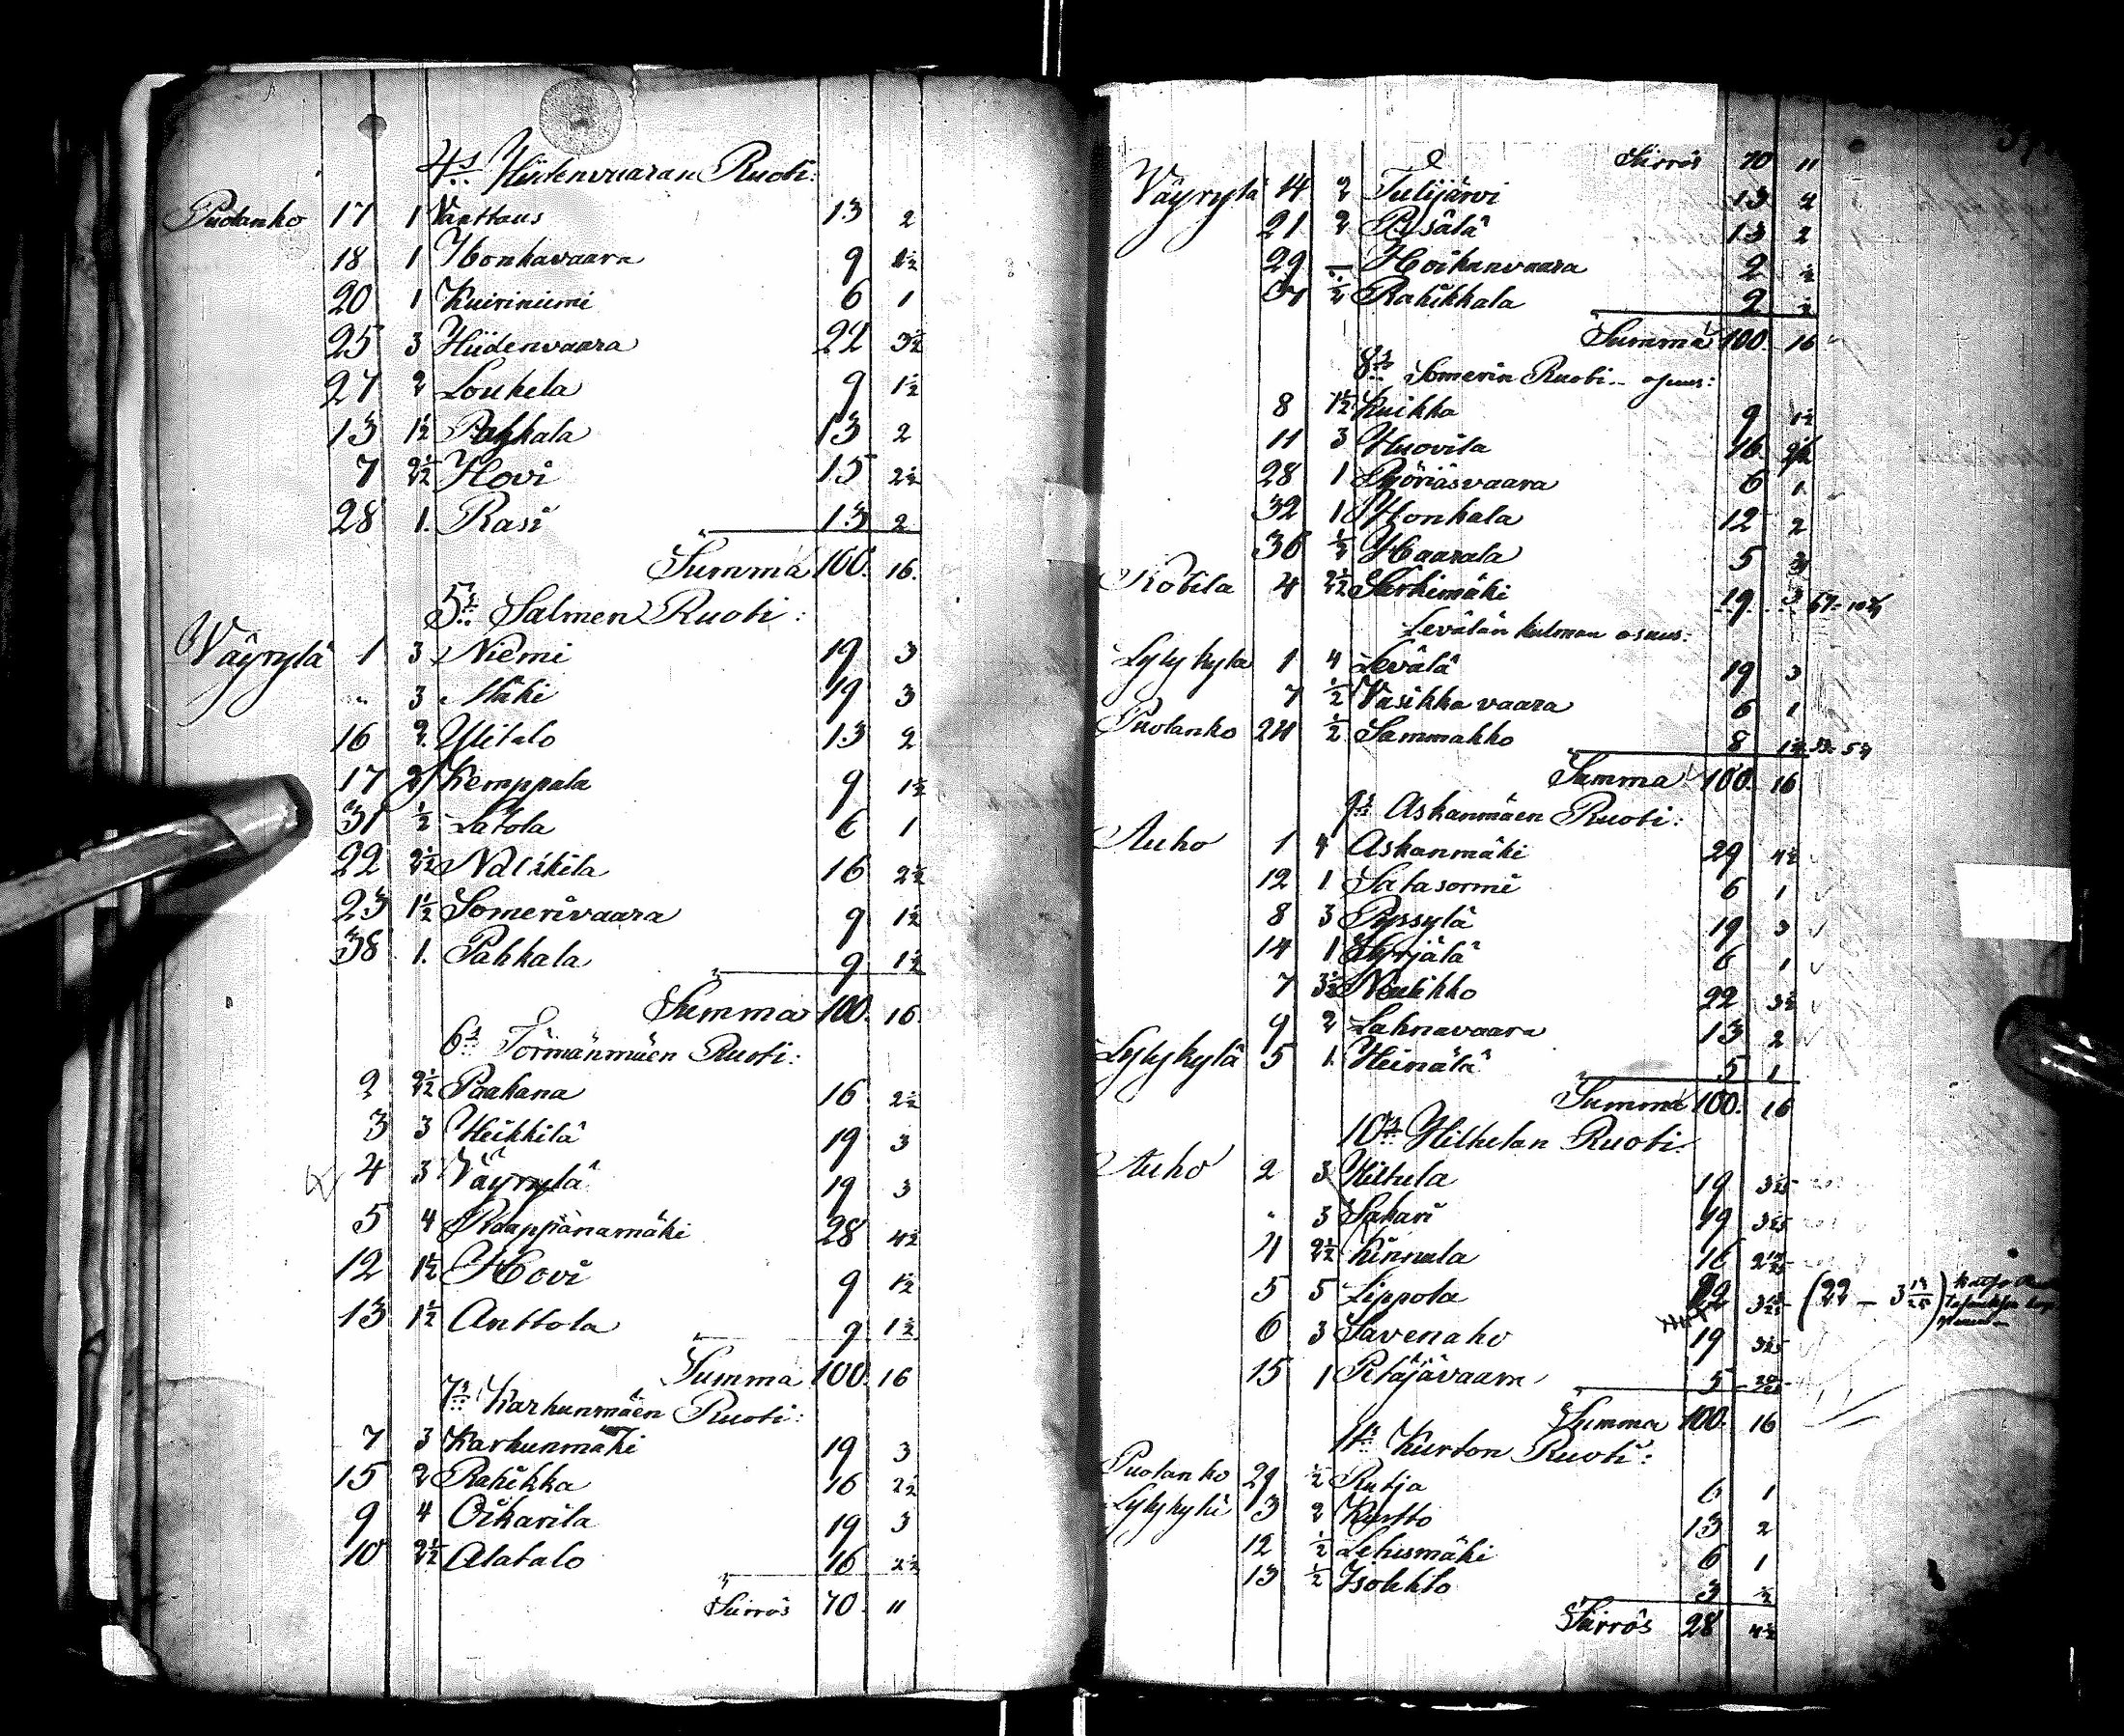 4s Hiidenvaaran Ruoti:
Puolanko 17 1 Vaattaus 13 2
18 1 Honkavaara 9 1½
20 1 Kuiriniemi 6 1
25 3 Hiidenvaara 22 3½
27 2 Louhela 9 1½
13 1½ Pahkala 13 2
7 2½ Hovi 15 2½
28 1. Rasi 13 2
Summa 100. 16.
5s Salmen Ruoti:
Väyrylä 1 3 Niemi 19 3
" 3 Mäki 19 3
16 2. Ylitalo 13 2
17 2 Kemppala 9 1½
31 ½ Latola 6 1
22 2½ Nalikila 16 2½
23 1½ Somerivaara 9 1½
38 1. Pahkala 9 1½
Summa 100. 16.
6s Törmänmäen Ruoti:
2 2½ Paakana 16 2½
3 3 Heikkilä 19 3
4 3 Väyrylä 19 3
5 4 Raappanamäki 28 4½
12 1½ Hovi 9 1½
13 1½ Anttola 9 1½
Summa 100. 16
7s Karhunmäen Ruoti:
7 3 Karhunmäki 19 3
15 2 Rahikka 16 2½
9 4 Oikarila 19 3
10 2½ Alatalo 16 2½
Siirros 70. 11
Siirros 70 11
Väyrylä 14 2 Tulijärvi 13 2
21 2 Pisälä 13 2
29 — Hoikanvaara 2 ½
37 ½ Rahikkala 2 ½
Summa 100. 16
8s Somerin Ruoti osuus:
8 1½ Kuikka 9 1½
11 3 Huovila 16 2½
28 1 Pyöriäsvaara 6 1
32 1 Honkala 12 2
36 ½ Haarala 5
Kotila 4 2½ Särkimäki 19 3
Levälän kulman osuus:
Lylykylä 1 4 Levälä 19 3
7 ½ Vasikkavaara 6 1
Puolanko 24 ½ Sammakko 8
Summa 100. 16
9s Askanmäen Ruoti:
Auho 1 4 Askanmäki 29 4½
12 1 Satasormi 6 1
8 3 Pyssylä 19 3
14 1 Syrjälä 6 1
7 3½ Neulikko 22 3½
9 2 Lahnavaara 13 2
Lylykylä 5 1. Heinälä 5 1
Summa 100. 16
10s Hiltulan Ruoti:
Auho 2 3 Hiltula 19
" 3 Sakari 19
4 2½ Kinnula 16
5 5 Lippola 22 (22 — 3 13/25)
6 3 Savenaho 19
15 1 Petäjävaara 5
Summa 100. 16
11s Kurton Ruoti:
Puolanko 29 ½ Rutja 6 1
Lylykylä 3 2 Kurtto 13 2
12 ½ Lehismäki 6 1
13 ½ Isolehto 3 ½
Siirros 28 4½